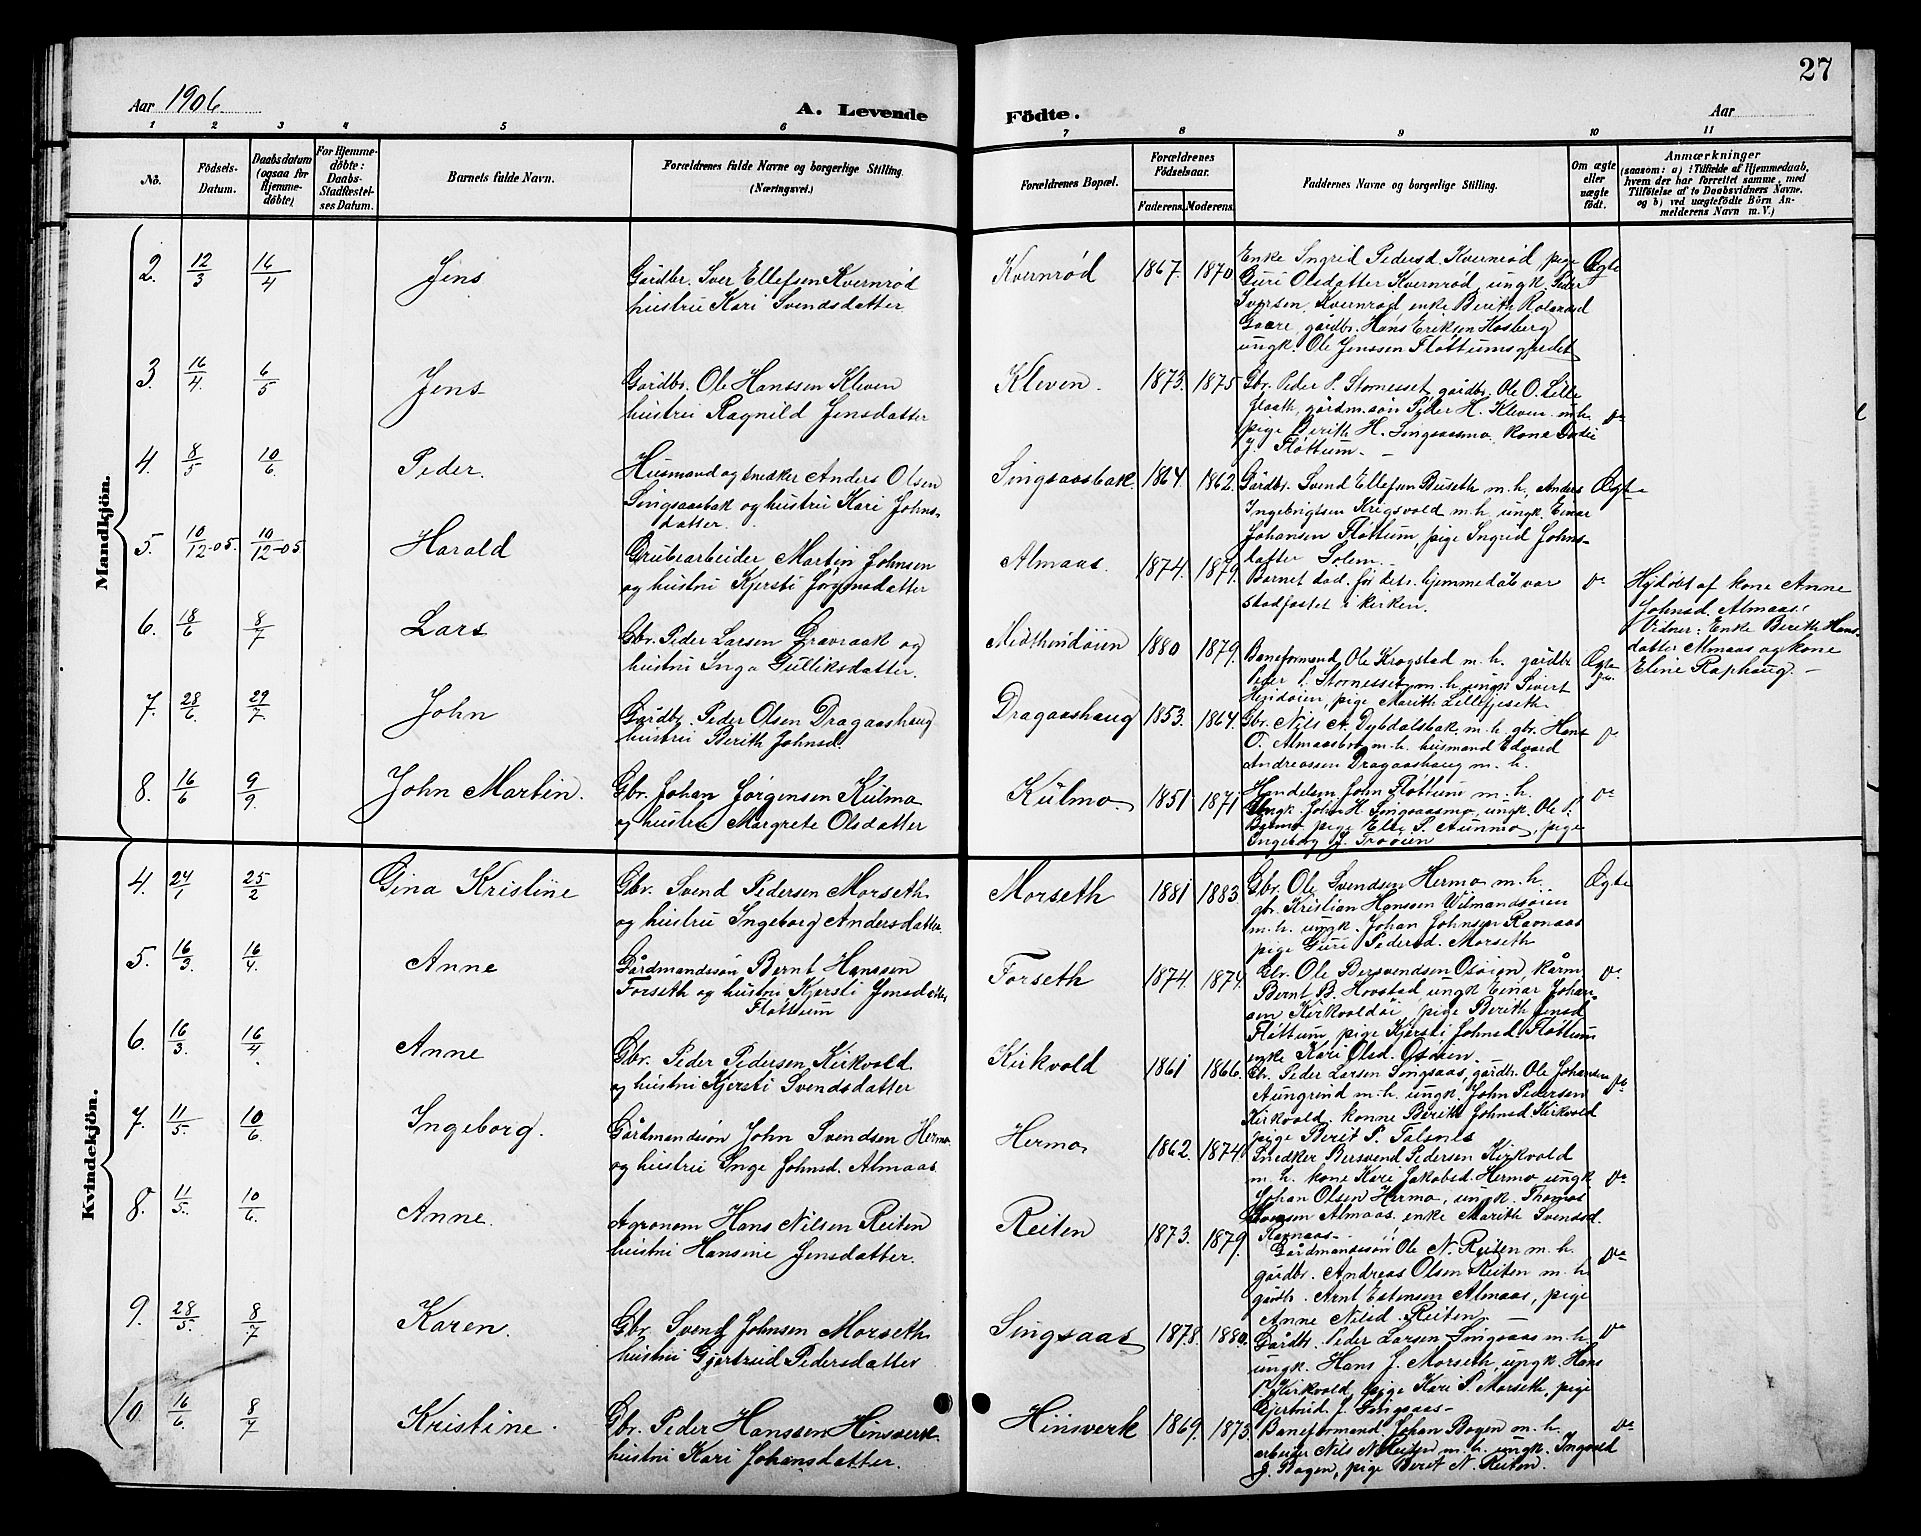 27
Aar 1906
A. Levende
Födte.
Aar
1 2 3 4 5 6 7 8 9 10 11
No.
Födsels-
Datum.
Daabsdatum
(ogsaa for
Hjemme-
döbte)
For Hjemme-
döbte:
Daabs-
Stadfæstel-
ses Datum.
Barnets fulde Navn.
Forældrenes fulde Navne og borgerlige Stilling.
(Næringsvei.)
Forældrenes Bopæl.
Forældrenes
Födselsaar.
Faderens.
Moderens.
Faddernes Navne og borgerlige Stilling.
Om ægte
eller
uægte
født.
Anmærkninger
(saasom: a) i Tilfælde af Hjemmedaab,
hvem der har forrettet samme, med
Tilföielse af to Daabsvidners Navne.
og b) ved uægtefödte Börn An-
melderens Navn m. V.)
Mandkjön.
2. 12/3 16/4 Jens
Gårdbr. Iver Ellefsen Kvernrød
hustru Kari Svendsdatter
Kvernrød 1867. 1870
Enke Ingrid Pedersd. Kvernrød, pige
Guri Olsdatter Kvernrød, ungk. Peder
Iversen Kvernrød, enke Berith
Gaare, gårdbr. Hans Eriksen
ungk. Ole Jenssen Fløttumsgredet
Ægte
3. 16/4 6/5 Jens
Gårdbr. Ole Hanssen Kleven
hustru Ragnild Jensdatter
Kleven. 1873. 1875
Gbr. Peder P. Storrøsset, gårdbr. Ole O. Lille
floath, gårdm.søn Peder H. Kleven m.h.
pige Berith H. Singsaasmo, kone
J. Fløttum. -
do
4. 8/5 10/6 Peder.
Husmand og snedker Anders Olsen
Singsaasbak og hustru Kari Johns-
datter.
Singsaasbak. 1864. 1862.
Gårdbr. Svend Ellefsen Buseth m.h. Anders
Ingebrigtsen Krigsvold m.h. ungk. Einar
Johansen Fløttum, pige Ingrid Johns-
datter Solem.
Ægte
5. 10/12-05. 10/12-05 Harald
Grubearbeider Martin Johnsen
og hustru Kjersti
Almaas. 1874. 1879.
Barnet død før dets hjemmedåb var
stadfæstet i kirken.
do
Hjdøbt af kone Anne
Johnsd. Almaas.
Vidner: Enke Berith Hans-
datter Almaas og kone
Eline Raphaug. -
6. 18/6 8/7 Lars
Gbr. Peder Larsen Gravraak og
hustru Inga Gulliksdatter.
Midthindøien 1880 1879.
Baneformand Ole Krogstad m.h. gårdbr
Peder P. m.h. ungk. Sivert
pige Marith
Ægte
7. 28/6 29/7 John
Gårdbr. Peder Olsen Dragaashaug
hustru Berith Johnsd.
Dragaashaug 1853. 1864.
Gbr. Nils A. Dybdalsbak m.h. gbr. Hans
O. Almaasbro m.h. husmand Edvard
Andreassen Dragaashaug m.h.
do
8. 16/6 9/9. John Martin.
Gbr. Johan Jørgensen Kulmo
og hustru Margrete Olsdatter
Kulmo 1851. 1871
Handelsm. John Fløttum m.h.
ungk. John H. Singsaasmo, ungk. Ole P.
pige Elie P. Aunmo, pige
Ingeborg J. Trøøien
do
Kvindekjön.
4. 24/1 25/2 Gina Kristine
Gbr. Svend Pedersen Morseth
og hustru Ingeborg Andersdatter.
Morseth 1881 1883.
Gbr. Ole Svendsen Hermo m.h.
gbr. Kristian Hansen Vilmandsøien
m.h. ungk. Johan Johnsen Ramaas
pige Guri Pedersd. Morseth
Ægte
5. 16/3. 16/4. Anne
Gårdmandssøn Bernt Hanssen
Forseth og hustru Kjersti Jensdatter
Fløttum
Forseth 1874. 1874.
Gbr. Ole Bersvendsen Osøien, kårm.
Bernt B. Hovstad, ungk Einar Johan-
sen Kirkvoldøi, pige Berith Jensd
Fløttum, pige Kjersti Johnsd. Fløttum
enke Kari Olsd. Osøien.
do
6. 16/3. 16/4. Anne
Gbr. Peder Pedersen Kirkvold
og hustru Kjersti Svendsdatter
Kirkvold 1861 1866.
Gbr. Peder Larsen Singsaas, gårdbr. Ole Johansen
Aungrind m.h. ungk. John Pedersen
Kirkvold, konne Berith Johnsd. Kirkvold
pige Berit P. Talsnes
do
7. 11/5. 10/6 Ingeborg.
Gårdmandssøn John Svendsen Hermo
og hustru Inge Johnsd. Almaas.
Hermo 1862. 1874
Snedker Bersvend Pedersen Kirkvold
m.h. kone Kari Jakobsd. Hermo ungk
Johan Olsen Hermo, ungk. Thomas
Almaas, enke Marith Svendsd.
Ramaas-
do
8. 11/5. 10/6. Anne.
Agronom Hans Nilsen Reiten
hustru Hansine Jensdatter.
Reiten 1873. 1879.
Gårdmandssøn Ole N. Reiten m.h.
gårdbr. Andreas Olsen Reiten m.h.
gårdbr. Arnt Estensen Almaas, pige
Anne Nilsd. Reiten.
do
9. 28/5. 8/7 Karen.
Gbr. Svend Johnsen Morseth
hustru Gjertrud Pedersdatter
Singsaas 1878. 1880.
Gårdbr. Peder Larsen Singsaas m.h.
ungk. Hans J. Morseth, ungk. Hans
P. Kirkvold, pige Kari P. Morseth, pige
Gjertrud J. Singsaas-
do
10. 16/6 8/7 Kristine.
Gbr. Peder Hanssen Hinsverk
hustru Kari Johansdatter.
Hinsverk 1869. 1873.
Baneformand Johan Bogen m.h.
arbeider Nils N. Reiten m.h. ungk. Ingvald
J. Bogen, pige Berit N. Reiten.
do